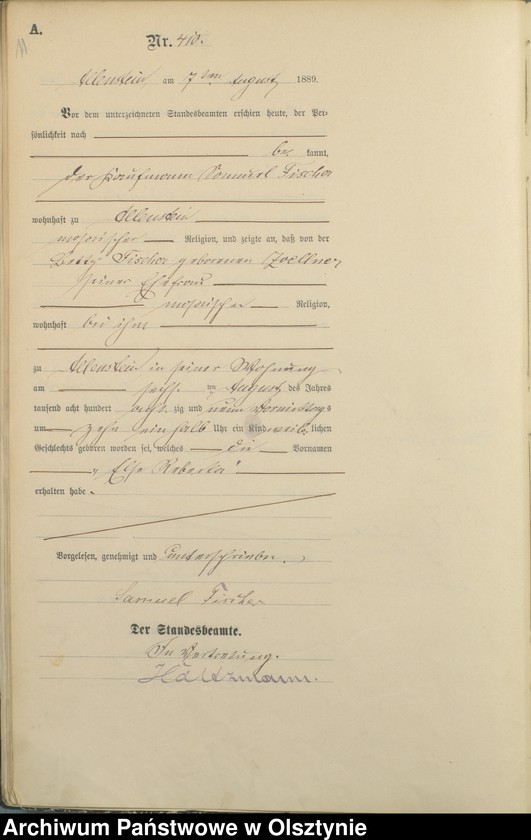 A.
11
Nr. 410.
Allenstein am 7ten August 1889.
Vor dem unterzeichneten Standesbeamten erschien heute, der Per-
sönlichkeit nach
be kannt,
der Kaufmann Samuel Fischer
wohnhaft zu Allenstein
mosaischer Religion, und zeigte an, daß von der
Betty Fischer geborenen Zoellner
seiner Ehefrau
mosaischer Religion,
wohnhaft bei ihm
zu Allenstein in seiner Wohnung
am sechsten August des Jahres
tausend acht hundert acht zig und neun Vormittags
um zehn ein halb Uhr ein Kind weib lichen
Geschlechts geboren worden sei, welches die Vornamen
„Else Rebecka"
erhalten habe.
Vorgelesen, genehmigt und unterschrieben.
Samuel Fischer
Der Standesbeamte.
In Vertretung.
Archiwum Państwowe w Olsztynie